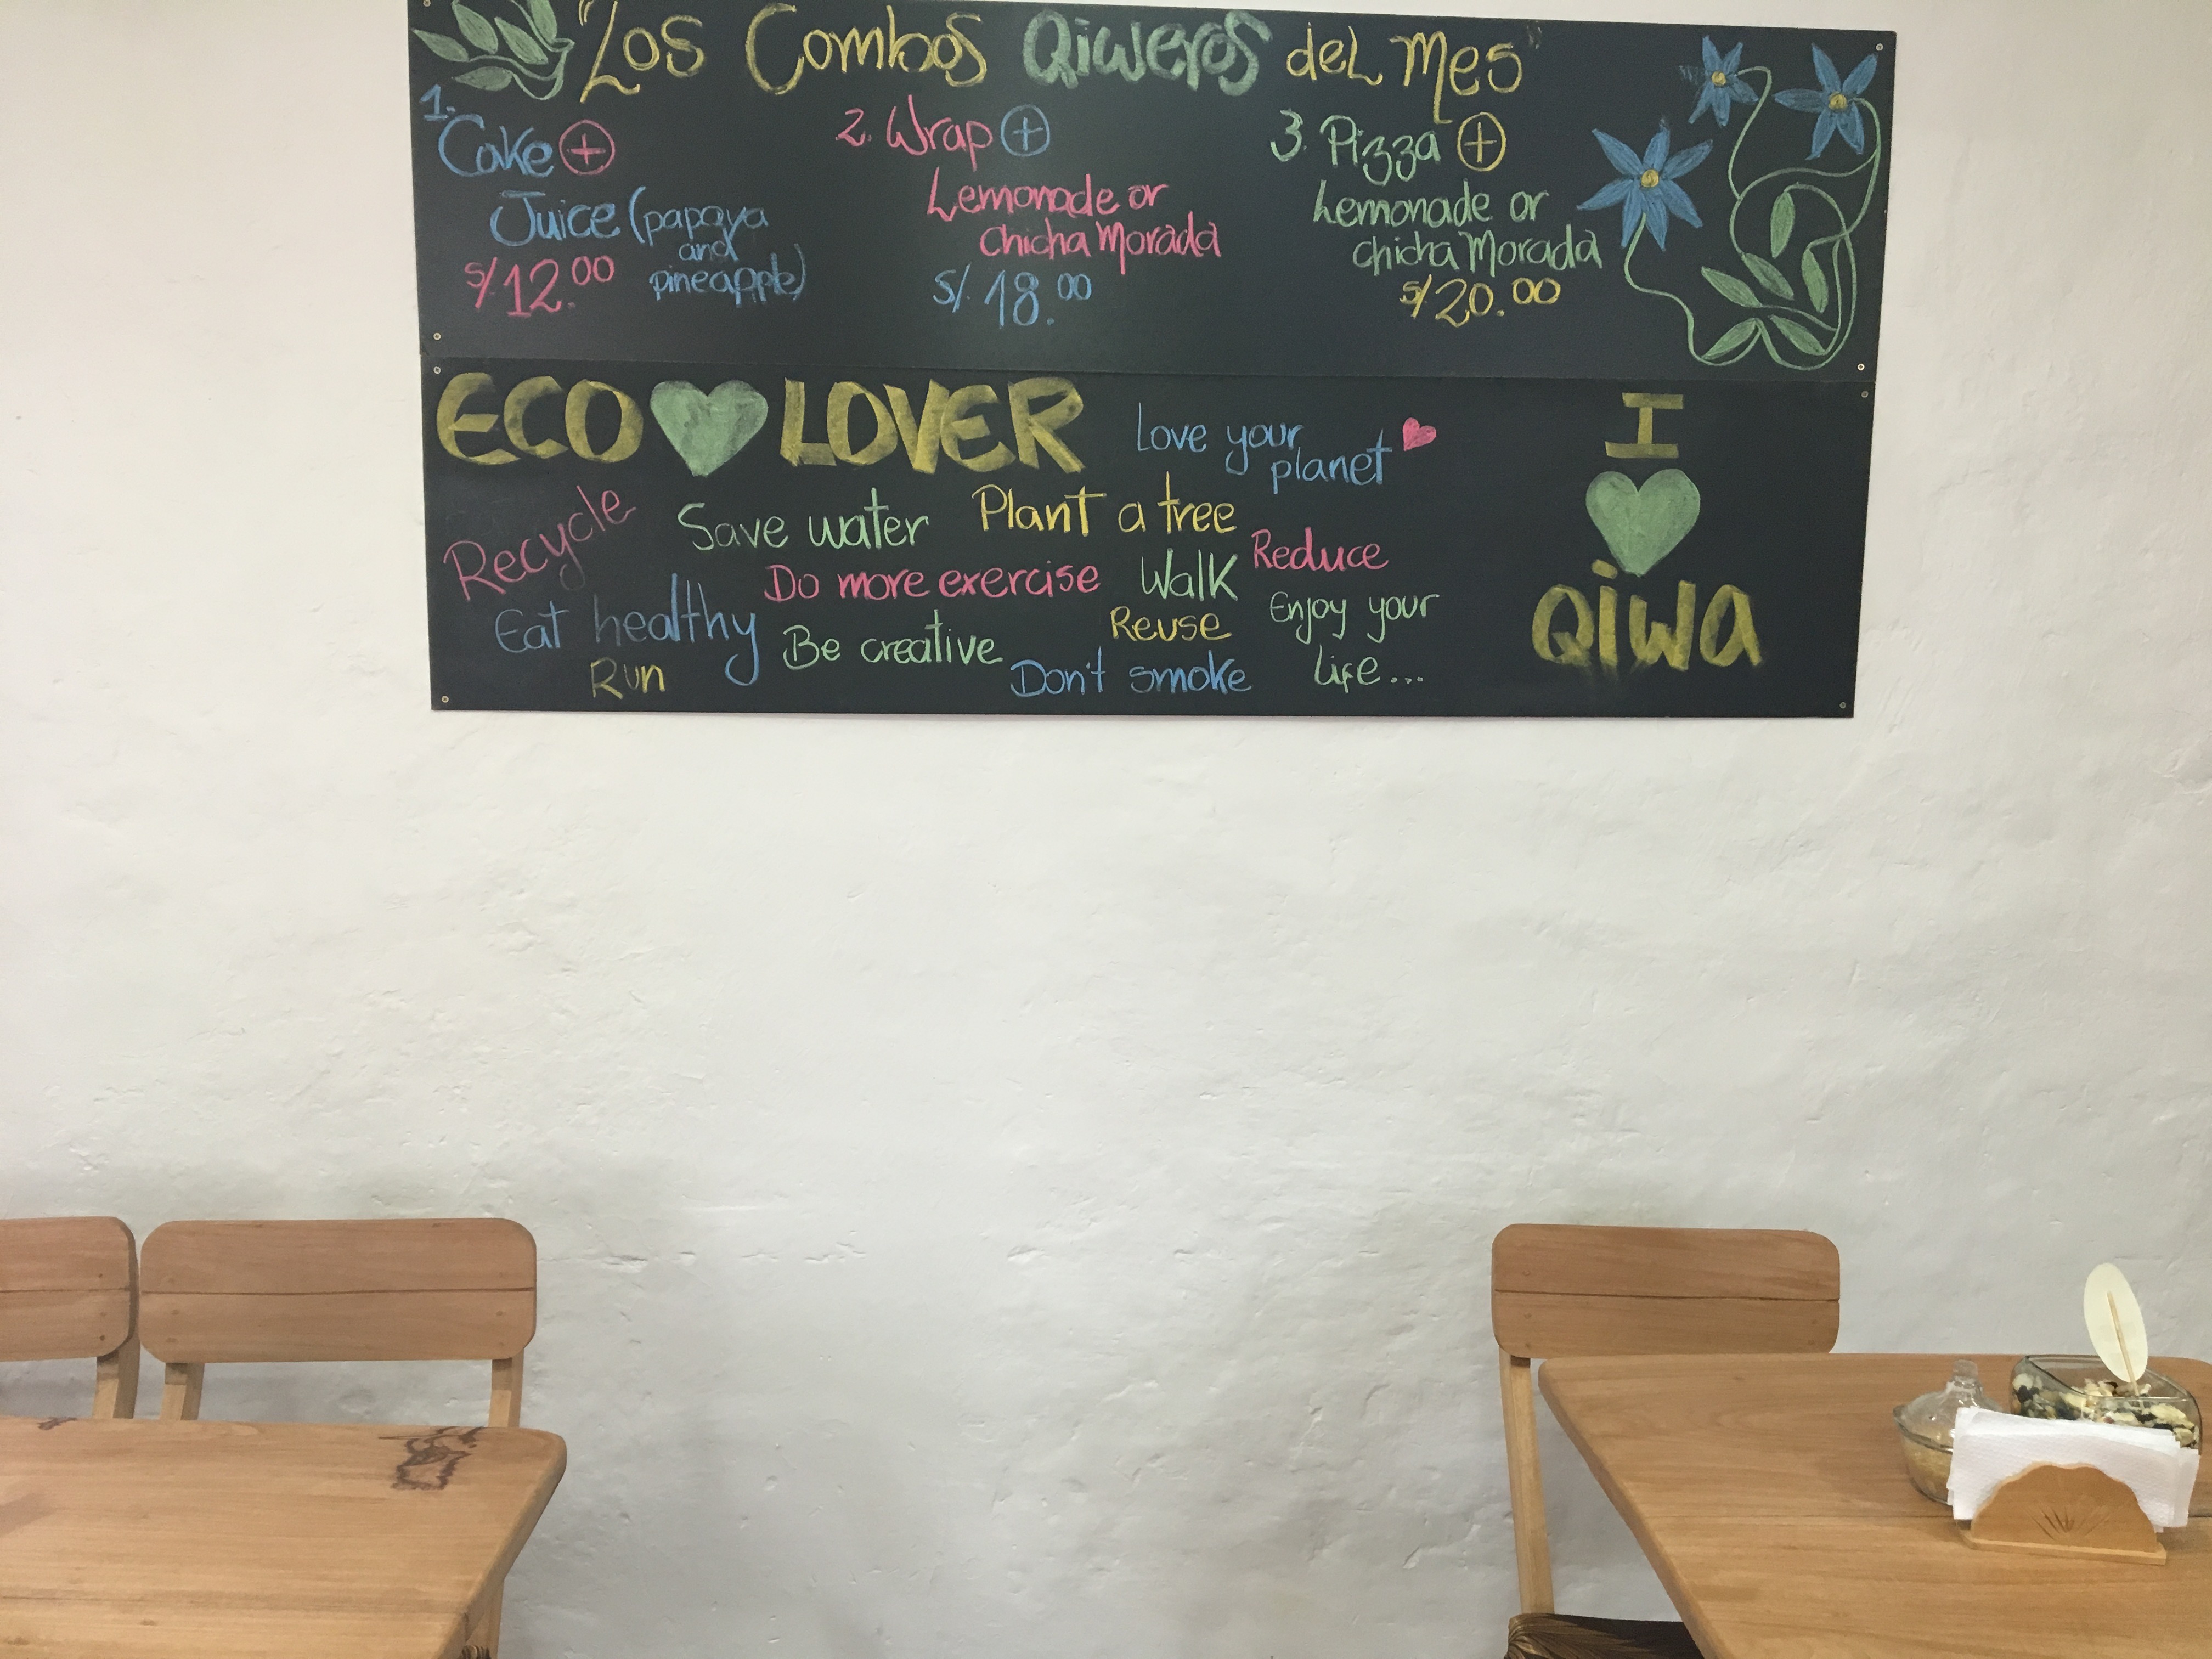 "Los Combos Qiweros del Mes"
1.
Cake +
Juice (papaya
and
pineapple)
S/12.00
2. Wrap +
Lemonade or
chicha Morada
S/. 18.00
3. Pizza +
Lemonade or
chicha Morada
S/20.00
ECO LOVER
Love your
planet
Recycle
Save water
Plant a tree
Reduce
Do more exercise
Walk
Eat healthy
Be creative
Reuse
Enjoy your
life...
Run
Don't smoke
I
Qiwa